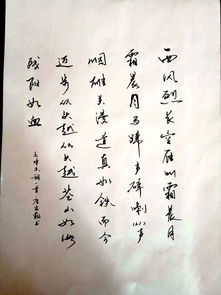 西风烈长空雁叫霜晨月
霜晨月马蹄声碎喇叭声
咽雄关漫道真如铁而今
迈步从头越从头越苍山如海
残阳如血